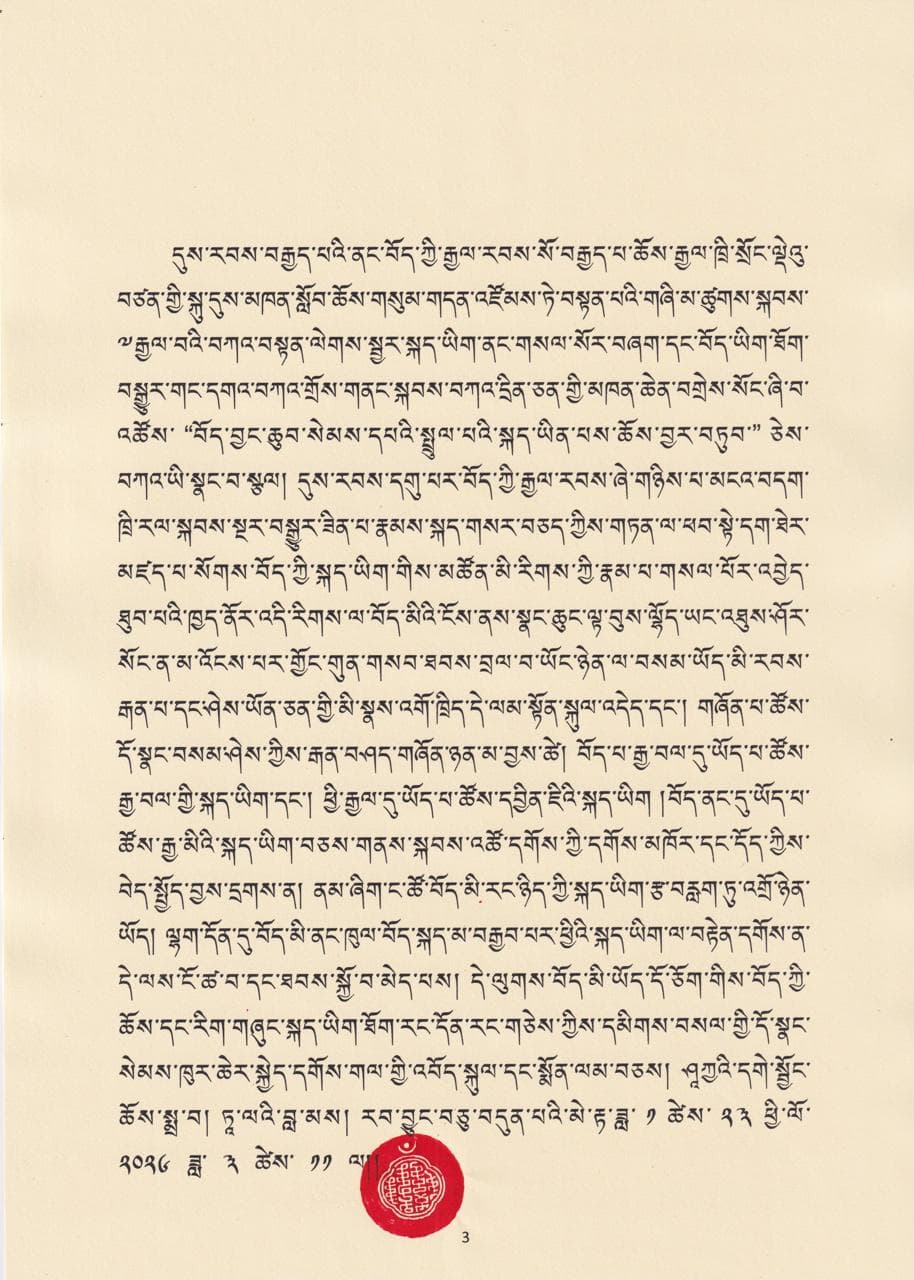 དུས་རབས་བརྒྱད་པའི་ནང་བོད་ཀྱི་རྒྱལ་རབས་སོ་བརྒྱད་པ་ཆོས་རྒྱལ་ཁྲི་སྲོང་ལྡེའུ་
བཙན་གྱི་སྐུ་དུས་མཁན་སློབ་ཆོས་གསུམ་གདན་འཛོམས་ཏེ་བསྟན་པའི་གཞི་མ་ཚུགས་སྐབས་
༸རྒྱལ་བའི་བཀའ་བསྟན་ལེགས་སྦྱར་སྐད་ཡིག་ནང་གསལ་སོར་བཞག་དང་བོད་ཡིག་ཐོག་
བསྒྱུར་གང་དགའ་བཀའ་གྲོས་གནང་སྐབས་བཀའ་དྲིན་ཅན་གྱི་མཁན་ཆེན་བགྲེས་སོང་ཞི་བ་
འཚོས་ “བོད་བྱང་ཆུབ་སེམས་དཔའི་སྤྲུལ་པའི་སྐད་ཡིན་པས་ཆོས་བྱར་བཏུབ་” ཅེས་
བཀའ་ཡི་སྣང་བ་སྩལ། དུས་རབས་དགུ་པར་བོད་ཀྱི་རྒྱལ་རབས་ཞེ་གཉིས་པ་མངའ་བདག་
ཁྲི་རལ་སྐབས་སྔར་བསྒྱུར་ཟིན་པ་རྣམས་སྐད་གསར་བཅད་ཀྱིས་གཏན་ལ་ཕབ་སྟེ་དག་ཐེར་
མཛད་པ་སོགས་བོད་ཀྱི་སྐད་ཡིག་གིས་མཚོན་མི་རིགས་ཀྱི་རྣམ་པ་གསལ་པོར་འབྱེད་
ཐུབ་པའི་ཁྱད་ནོར་འདི་རིགས་ལ་བོད་མིའི་ངོས་ནས་སྣང་ཆུང་ལྟ་བུས་ལྷོད་ཡང་འཐུས་ཤོར་
སོང་ན་མ་འོངས་པར་གྱོང་གུན་གསབ་ཐབས་བྲལ་བ་ཡོང་ཉེན་ལ་བསམ་ཡོད་མི་རབས་
རྒན་པ་དང་ཤེས་ཡོན་ཅན་གྱི་མི་སྣས་འགོ་ཁྲིད་དེ་ལམ་སྟོན་སྐུལ་འདེད་དང་། གཞོན་པ་ཚོས་
དོ་སྣང་བསམ་ཤེས་ཀྱིས་རྒན་བཤད་གཞོན་ཉན་མ་བྱས་ཚེ། བོད་པ་རྒྱ་བལ་དུ་ཡོད་པ་ཚོས་
རྒྱ་བལ་གྱི་སྐད་ཡིག་དང་། ཕྱི་རྒྱལ་དུ་ཡོད་པ་ཚོས་དབྱིན་ཇིའི་སྐད་ཡིག །བོད་ནང་དུ་ཡོད་པ་
ཚོས་རྒྱ་མིའི་སྐད་ཡིག་བཅས་གནས་སྐབས་འཚོ་དགོས་ཀྱི་དགོས་མཁོར་དང་དོད་ཀྱིས་
བེད་སྤྱོད་བྱས་དྲགས་ན། ནམ་ཞིག་ང་ཚོ་བོད་མི་རང་ཉིད་ཀྱི་སྐད་ཡིག་རྩ་བརླག་ཏུ་འགྲོ་ཉེན་
ཡོད། ལྷག་དོན་དུ་བོད་མི་ནང་ཁུལ་བོད་སྐད་མ་བརྒྱབ་པར་ཕྱིའི་སྐད་ཡིག་ལ་བརྟེན་དགོས་ན་
དེ་ལས་ངོ་ཚ་བ་དང་ཐབས་སྐྱོ་བ་མེད་པས། དེ་ལུགས་བོད་མི་ཡོད་དོ་ཅོག་གིས་བོད་ཀྱི་
ཆོས་དང་རིག་གཞུང་སྐད་ཡིག་ཐོག་རང་དོན་རང་གཅེས་ཀྱིས་དམིགས་བསལ་གྱི་དོ་སྣང་
སེམས་ཁུར་ཆེར་སྐྱེད་དགོས་གལ་གྱི་འབོད་སྐུལ་དང་སྨོན་ལམ་བཅས། ཤཱཀྱའི་དགེ་སྦྱོང་
ཆོས་སྨྲ་བ། ཏཱ་ལའི་བླ་མས། རབ་བྱུང་བཅུ་བདུན་པའི་མེ་རྟ་ཟླ་ ༡ ཚེས་ ༢༣ ཕྱི་ལོ་
༢༠༢༦ ཟླ་ ༣ ཚེས་ ༡༡ ལ།།
3